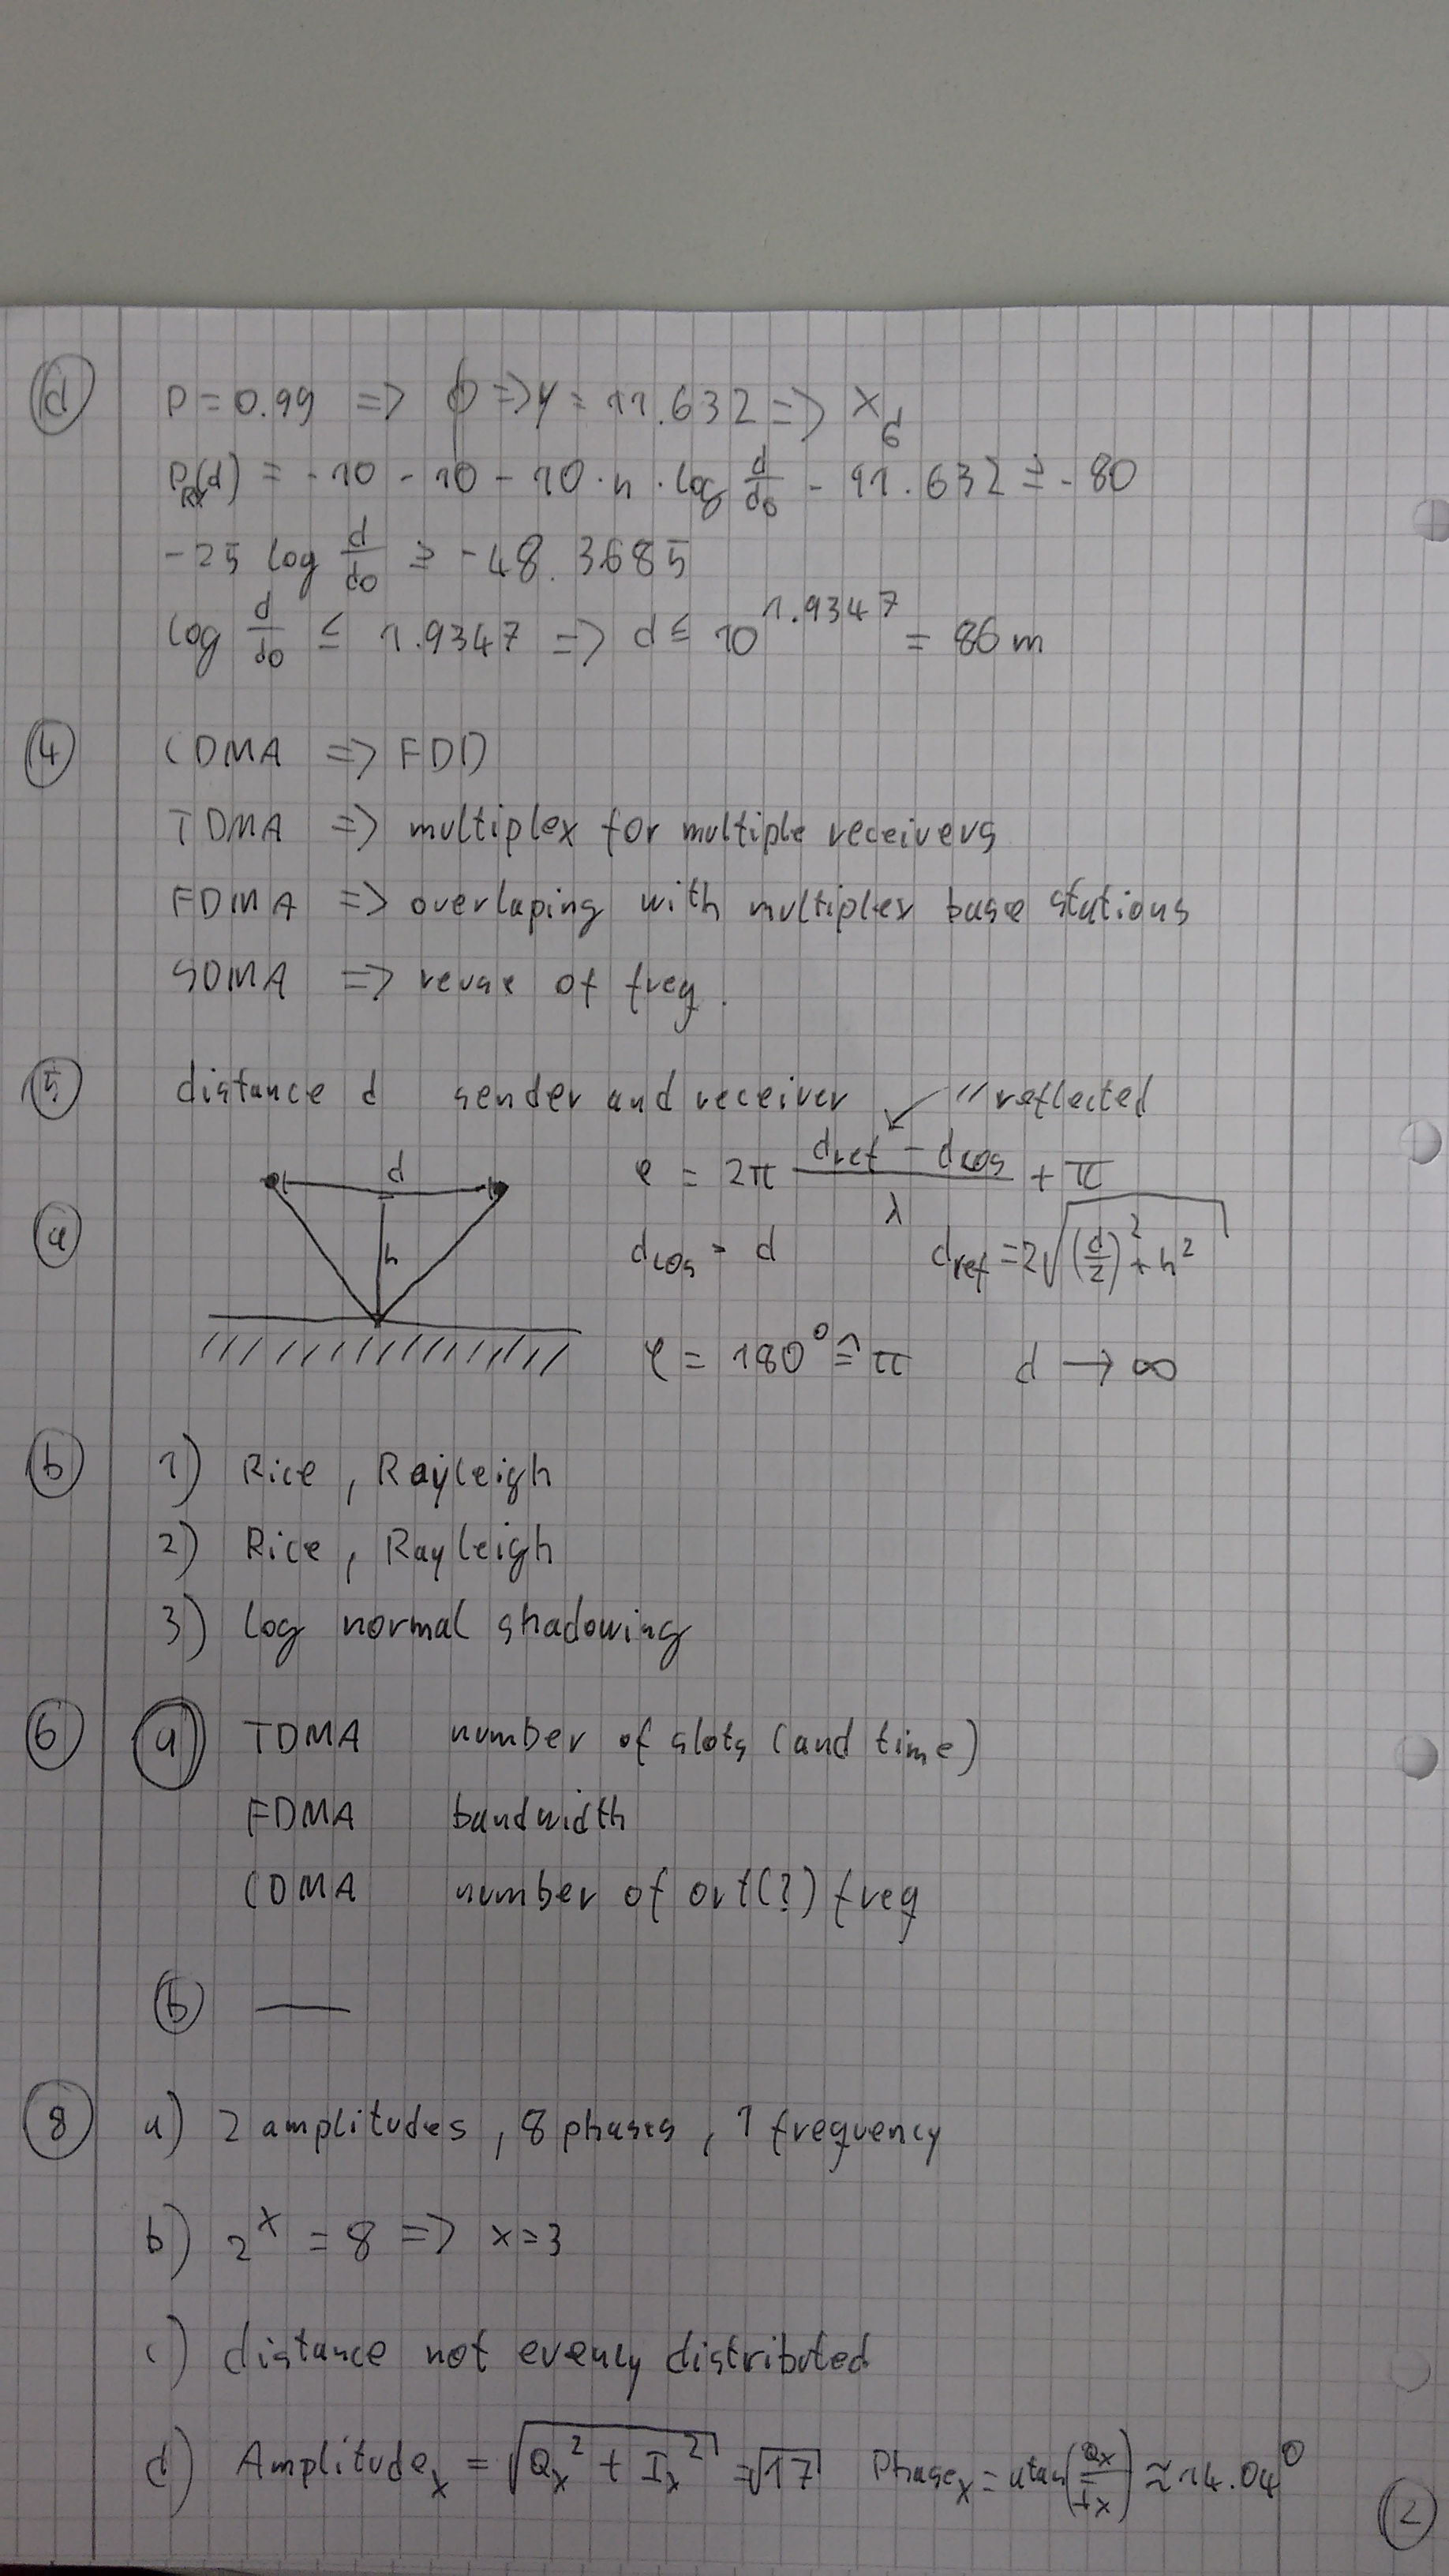 d P = 0.99 => ϕ => y = 11.632 => X_σ
P_Rx(d) = -10 - 10 - 10 · n · log d/d0 - 11.632 ≥ -80
-25 log d/d0 ≥ -48.3685
log d/d0 ≤ 1.9347 => d ≤ 10^1.9347 = 86 m
4 CDMA => FDD
TDMA => multiplex for multiple receivers
FDMA => overlaping with multiplex base stations
SDMA => reuse of freq.
5 distance d sender and receiver // reflected
d
φ = 2π (d_ref - d_LOS)/λ + π
a h
d_LOS = d d_ref = 2√((d/2)² + h²)
φ = 180° ≙ π d → ∞
b 1) Rice, Rayleigh
2) Rice, Rayleigh
3) log normal shadowing
6 a TDMA number of slots (and time)
FDMA bandwidth
CDMA number of ort(?) freq
b —
8 a) 2 amplitudes, 8 phases, 1 frequency
b) 2^x = 8 => x = 3
c) distance not evenly distributed
d) Amplitude_x = √(Q_x² + I_x²) = √17 Phase_x = atan(Q_x/I_x) ≈ 14.04°
2